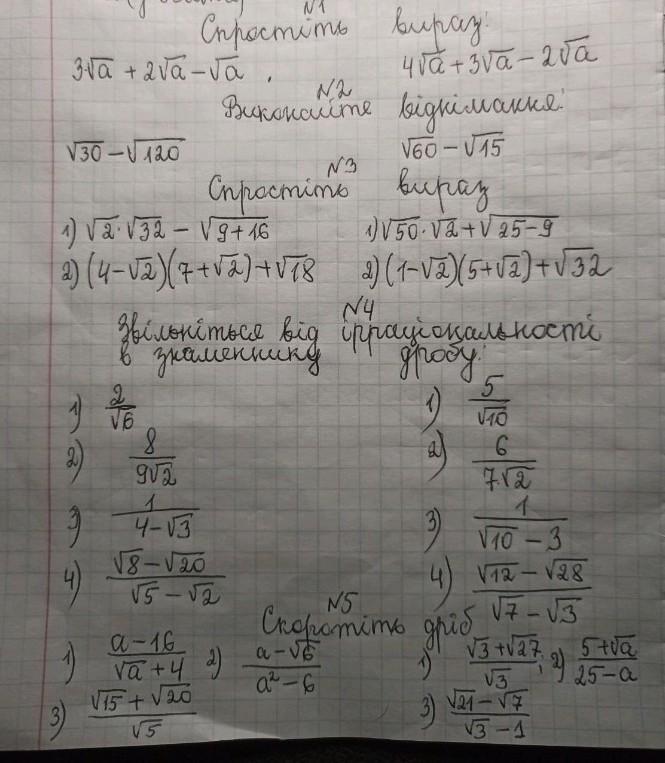 №1
Спростіть вираз:
3√a + 2√a - √a . 4√a + 3√a - 2√a
№2
Виконайте віднімання:
√30 - √120 √60 - √15
№3
Спростіть вираз
1) √2·√32 - √(9+16) 1) √50·√2 + √(25-9)
2) (4-√2)(7+√2)+√18 2) (1-√2)(5+√2)+√32
№4
Звільніться від ірраціональності
в знаменнику дробу:
1) 2/√6 1) 5/√10
2) 8/(9√2) 2) 6/(7√2)
3) 1/(4-√3) 3) 1/(√10 - 3)
4) (√8 - √20)/(√5 - √2) 4) (√12 - √28)/(√7 - √3)
№5
Скоротіть дріб
1) (a-16)/(√a + 4) 2) (a-√6)/(a² - 6) 1) (√3 + √27)/√3 ; 2) (5+√a)/(25-a)
3) (√15 + √20)/√5 3) (√21 - √7)/(√3 - 1)